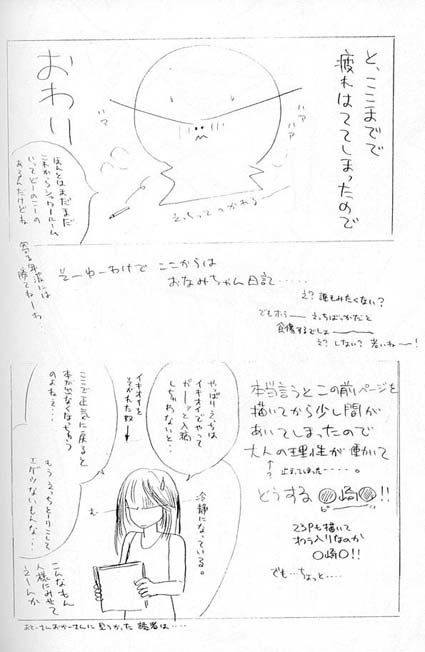 と、ここまでで
疲れはててしまったので
おわり
ハァ
ハァ
えっちってつかれる
ほんとはまだまだ
これからシャワールーム
いってどーのこーの
あるんだけどね
寄る年波には
勝てねーわ
そーゆーわけで ここからは
おなみちゃん日記‥‥‥
え?誰もみたくない?
でもホラー えっちばっかだと
食傷するでしょ
え?しない?若いねー!
本当言うとこの前ページを
描いてから少し間が
あいてしまったので
大人の理性が働いて
止まってしまった‥‥。
どうする ◯崎◯!!
23Pも描いて
オチ入りなのか
◯崎◯!!
でも…ちょっと‥‥
やっぱりえちは
イキオイでやって
ガーッと入稿
しちゃわないと‥
イキオイを
そがれた奴
↓
ここで正気に戻ると
本が出なくなっちゃう
のよねぇ‥‥
冷静になっている。
む
もうえっちとりこして
エグツないもんな‥‥
こんなもん
人様にみせて
えーんか
おとーさんおかーさんに見つかった読者は‥‥